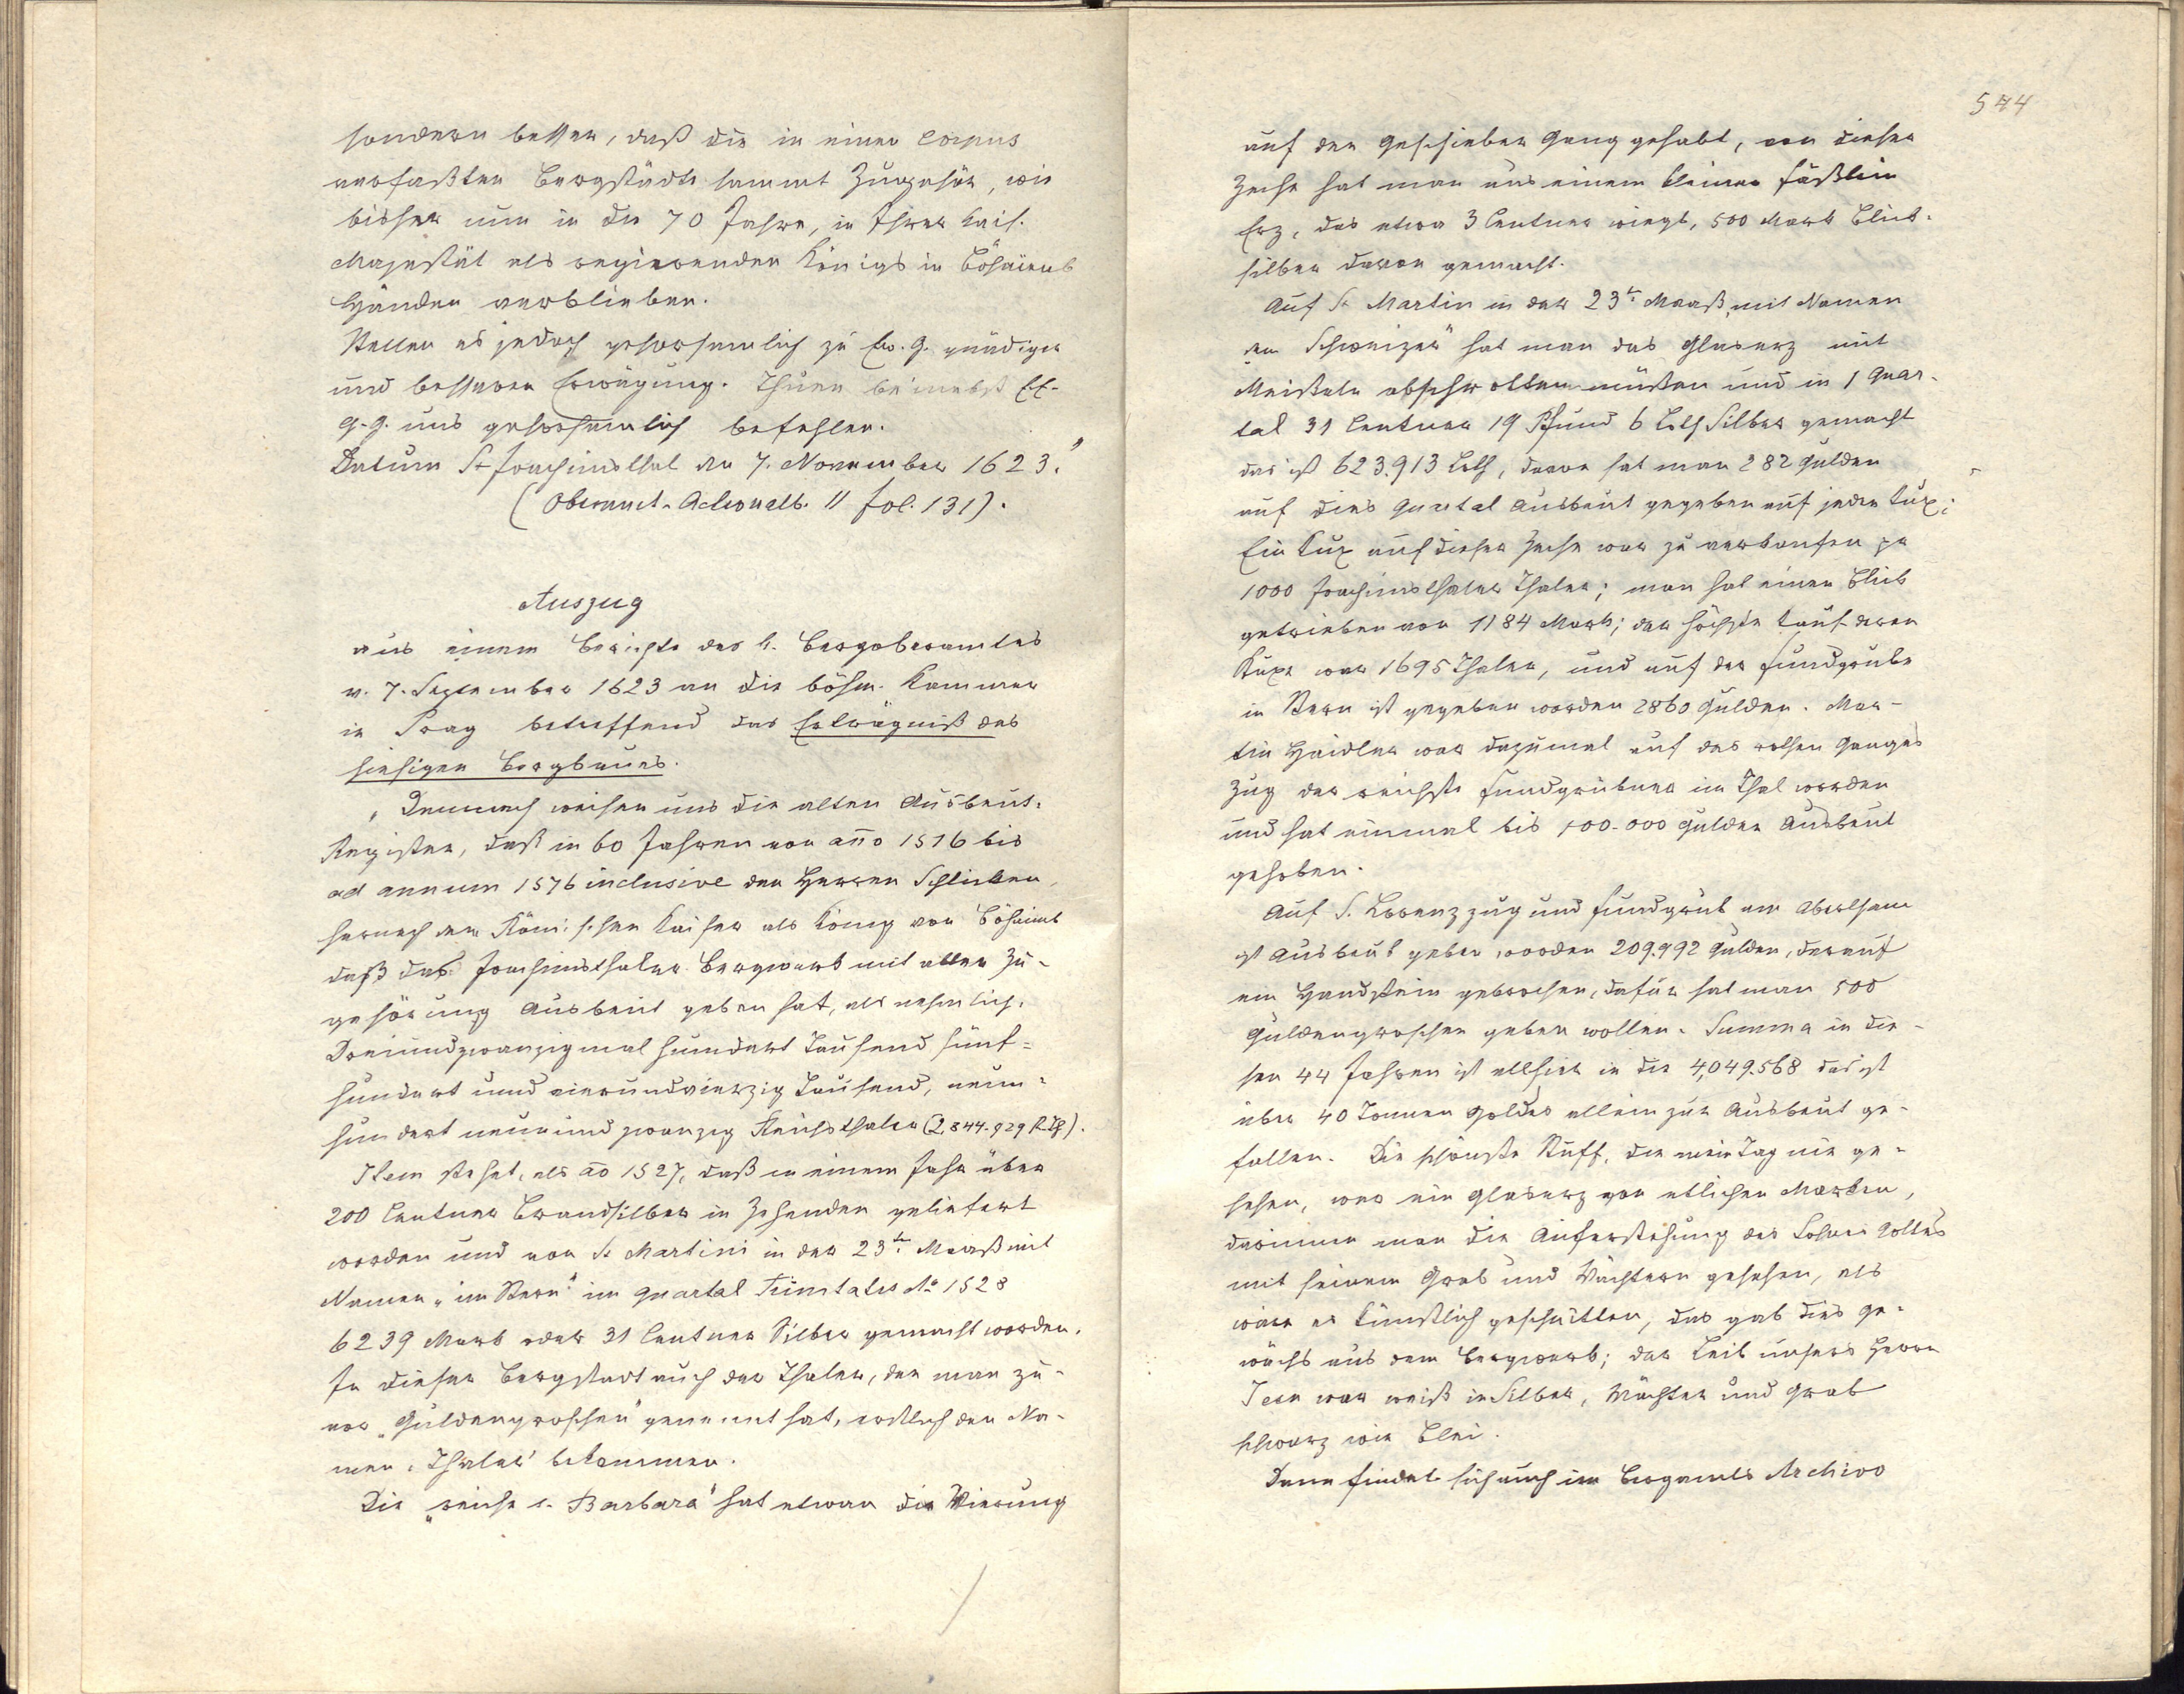 sondern besser, daß die in einen corpus
verfaßten Bergstädte sammt Zugehör, wie
bisher nun in die 70 Jahre, in Ihrer kais.
Majestät als regierenden Königs in Böhaimb
Händen verblieben.
Stellen es jedoch gehorsamlich zu Ew. G. gnädiger
und besseren Erwägung. Thuen beinebst EE.
G. G. uns gehorsamlich befehlen.
Datum St Joachimsthal den 7. November 1623."
(Oberamt. Actenalb. 11 fol. 131).
Auszug
aus einem Berichte des k. Bergoberamtes
v. 7. September 1623 an die böhm. Kammer
in Prag betreffend das Erträgniß des
hiesigen Bergbaues.
„Demnach weisen uns die alten Ausbeut-
Register, daß in 60 Jahren von año 1516 bis
ad annum 1576 inclusive den Herren Schlicken,
hernach dem Römischen Kaiser als König von Böhaimb
daß das Joachimsthaler Bergwerk mit aller Zu-
gehörung Ausbeut geben hat, als nehmlich.
Dreiundzwanzigmal hundert Tausend fünf=
hundert und vierundvierzig Tausend, neun=
hundert neunundzwanzig Reichsthaler (2,844.929 R.Th).
Item stehet, als ao 1527, daß in einem Jahr über
200 Centner Brandsilber in Zehenden geliefert
worden und von St Martini in der 23tn. Maaß mit
Namen „im Stern" im Quartal Trinitatis Ao 1528
6239 Mark oder 31 Centner Silber gemacht worden.
In dieser Bergstadt auch der Thaler, den man zu-
vor „Guldengroschen" genannt hat, erstlich den Na-
men „Thaler" bekommen.
Die „reiche s. Barbara" hat etwan die Vierung
544
auf den Geschieber Gang gehabt, von dieser
Zeche hat man aus einem kleinen Fäßlein
Erz, das etwa 3 Centner wiegt, 500 Mark Blick-
silber davon gemacht.
Auf St Martin in der 23t. Maaß, mit Namen
„den Schweizer" hat man das Glaserz mit
Meißeln abschrotten müßen und in 1 Quar-
tal 31 Centner 19 Pfund 6 Loth Silber gemacht
das ist 623.913 Loth, davon hat man 282 Gulden
auf dies Quartal Ausbeut gegeben auf jeden Kux;
Ein Kux auf dieser Zeche war zu verkaufen pr
1000 Joachimsthaler Thaler; man hat einen Blick
getrieben von 1184 Mark; der höchste Kauf deren
Kuxe war 1695 Thaler, und auf der Fundgrube
im Stern ist gegeben worden 2860 Gulden. Mar-
tin Haidler war dazumal auf des rothen Ganges
Zug der reichste Fundgrübner im Thal worden
und hat einmal bis 100.000 Gulden Ausbeut
gehoben.
Auf S. Lorenz zug und Fundgrub am Abertham
ist Ausbeut geben worden 209.992 Gulden, darauf
ein Handstein gebrochen, dafür hat man 500
Guldengroschen geben wollen. Summa in die-
sen 44 Jahren ist allhier in die 4,049.568 das ist
über 40 Tonnen Goldes allein zur Ausbeut ge-
fallen. Die schönste Stuff, die mein Tag nie ge-
sehen, war ein Glaserz von etlichen Marken,
darinnen man die Auferstehung des Sohnes Gottes
mit seinem Grab und Wächtern gesehen, als
wäre es künstlich geschnitten, das gab dies Ge-
wächs aus dem Bergwerk; der Leib unsers Herrn
Jesu war weiß in Silber, Wächter und Grab
schwarz wie Blei.
Dann findet sich auch im Bergamts Archivo